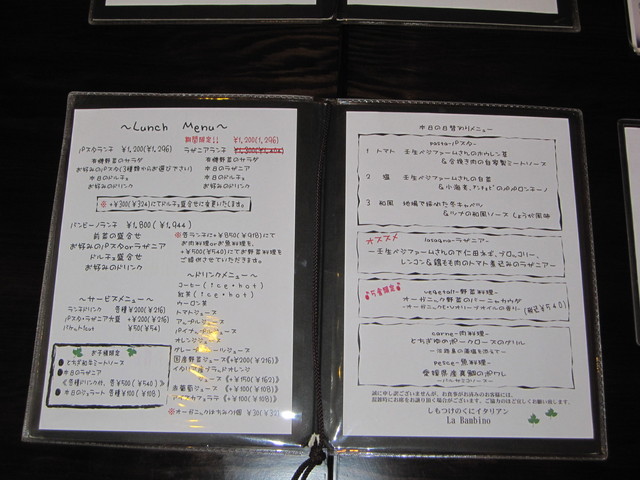 ~Lunch Menu~
期間限定!! ¥1,200(1,296)
パスタランチ ¥1,200(1,296)
ラザニアランチ
有機野菜のサラダ
お好みのパスタ(3種類からお選び下さい)
本日のドルチェ
お好みドリンク
有機野菜のサラダ
本日のラザニア
本日のドルチェ
お好みドリンク
※+¥300(¥324)にてドルチェ盛合せに変更いたします。
バンビーノランチ ¥1,800(¥1,944)
前菜の盛合せ
お好みのパスタorラザニア
ドルチェ盛合せ
お好みのドリンク
※各ランチに+¥850(¥918)にて
お肉料理orお魚料理を、
+¥500(¥540)にてお野菜料理を
ご提供させていただきます。
~サービスメニュー~
ランチドリンク 各種¥200(¥216)
パスタ・ラザニア大盛 +¥200(¥216)
バケット1cut ¥50(¥54)
お子様限定
●とちぎ和牛ミートソース
●本日のラザニア
《各種ドリンク付、各¥500(¥540)》
●本日のジェラート 各種¥100(¥108)
~ドリンクメニュー~
コーヒー(ice・hot)
紅茶(ice・hot)
ウーロン茶
トマトジュース
アップルジュース
パイナップルジュース
オレンジジュース
グレープフルーツジュース
国産野菜ジュース《+¥200(¥216)》
《+¥150(¥162)》
赤葡萄ジュース《+¥100(¥108)》
《+¥100(¥108)》
※オーガニックはちみつ1個 ¥30
本日の日替わりメニュー
pasta-パスタ-
1 トマト 壬生ベジファームさんのホウレン草
&合挽き肉の自家製ミートソース
2 塩 壬生ベジファームさんの白菜
&小海老、アンチョビのペペロンチーノ
3 和風 地場で採れた冬キャベツ
&ツナの和風ソース しょうが風味
オススメ
lasagna-ラザニア-
壬生ベジファームさんの下仁田ネギ、ブロッコリー、
レンコン&鶏もも肉のトマト煮込みのラザニア
5食限定
vegetali-野菜料理-
オーガニック野菜のバーニャカウダ
(税込¥540)
carne-肉料理-
とちぎゆめポークロースのグリル
pesce-魚料理-
愛媛県産真鯛のポワレ
~バルサミコソース~
誠に申し訳ございませんが、お食事がお済みのお客様には、
混雑時にお席をお譲り頂く場合がございます。ご協力のほど宜しくお願い致します。
しもつけのくにイタリアン
La Bambino